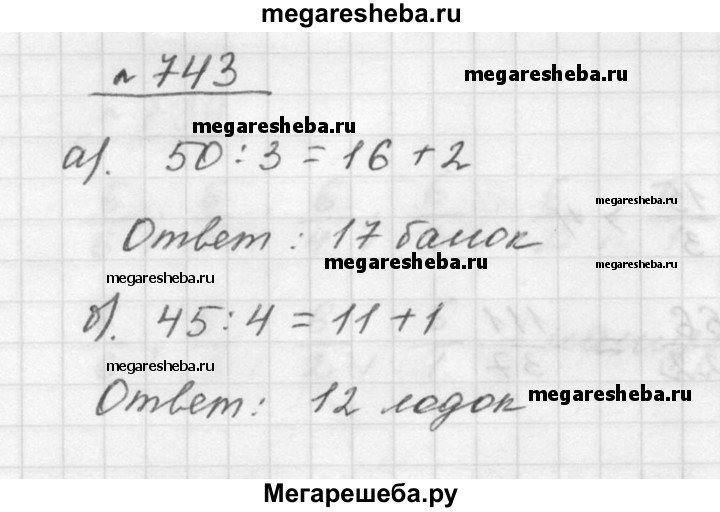 megaresheba.ru
№ 743
megaresheba.ru
megaresheba.ru
а). 50 : 3 = 16 + 2
megaresheba.ru
Ответ : 17 банок
megaresheba.ru
megaresheba.ru
megaresheba.ru
б). 45 : 4 = 11 + 1
megaresheba.ru
Ответ : 12 лодок
megaresheba.ru
Мегарешеба.ру